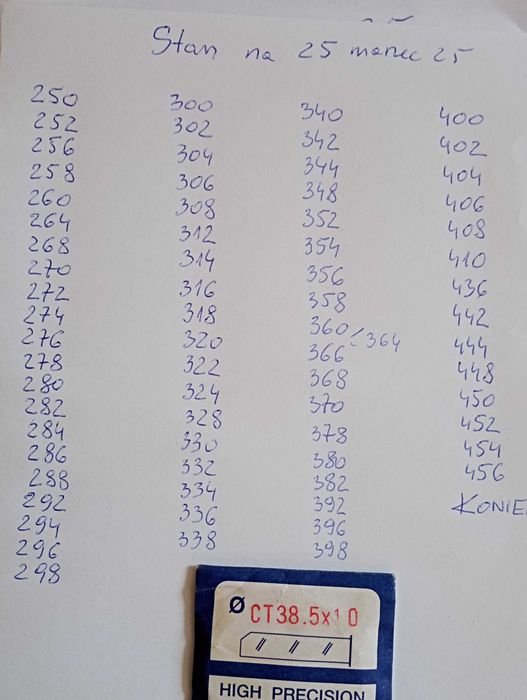 Stan na 25 marzec 25
250
252
256
258
260
264
268
270
272
274
276
278
280
282
284
286
288
292
294
296
298
300
302
304
306
308
312
314
316
318
320
322
324
328
330
332
334
336
338
340
342
344
348
352
354
356
358
360
364
366
368
370
378
380
382
392
396
398
400
402
404
406
408
410
436
442
444
448
450
452
454
456
KONIE
Ø CT38.5x1 0
HIGH PRECISION